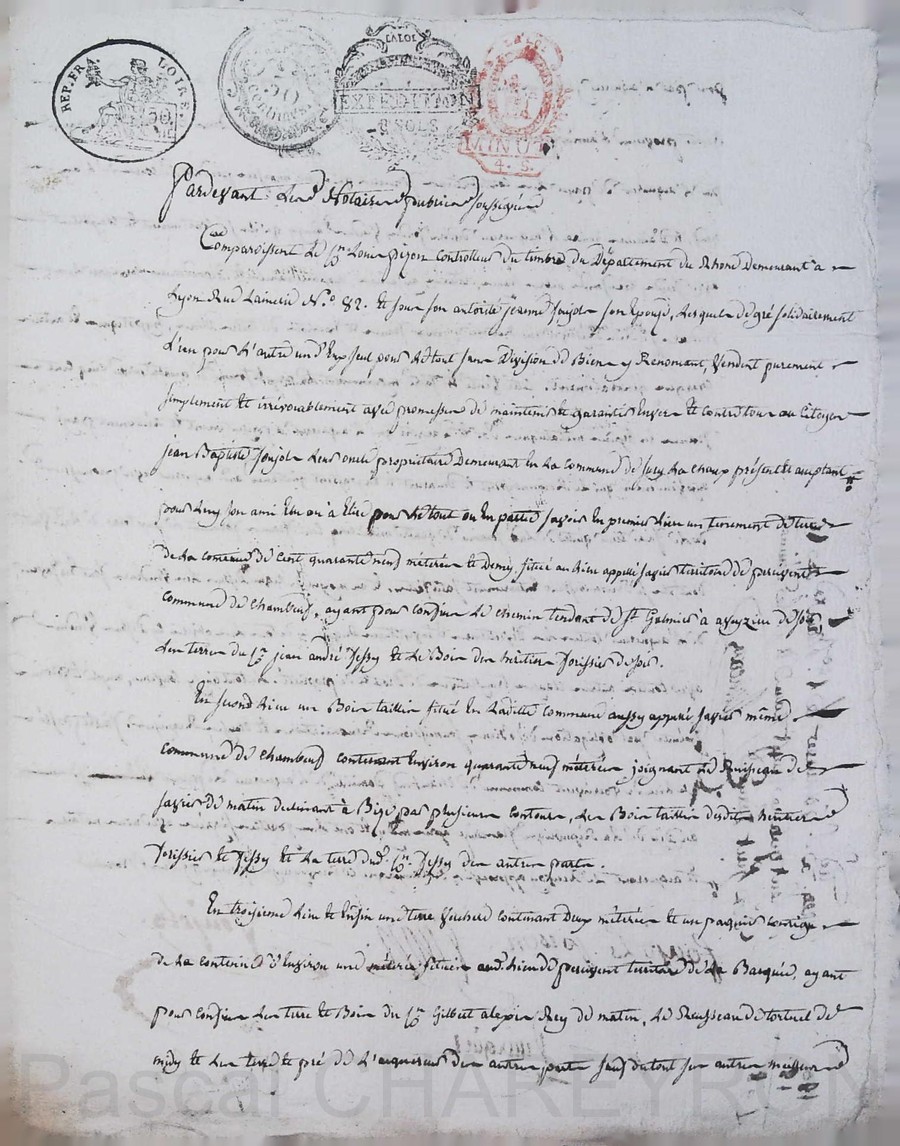 REP. FRA. LOIRE.
50
LA LOI
EXPEDITION
8 SOLS
LA LOI
MINUTE
4. S.
Pardevant Les Notaires publics soussignés
Comparoissent Le Cen Louis pizon Controlleur du timbre du Département du Rhone Demeurant à
Lyon Rue Lainerie N.o 82. Et sous son autorité jeanne Soujol son Epouse, Lesquels de gré solidairement
L'un pour L'autre un d'Eux seul pour Le tout sans Division de Bien y Renonçant, Vendent purement
simplement Et irrévocablement avec promesse de maintenir Et garantir Envers Et contre tous au Citoyen
jean Baptiste Soujol Leur oncle propriétaire Demeurant En La Commune de Sury La chaux présent Et acceptant
pour Luy son ami Elu ou à Elire pour Le tout ou En partie Savoir En premier Lieu un tenement de terre
de La contenue de Cent quarante neuf métérées Et Demy, située au Lieu appellé territoire de
Commune de chambeuf, ayant pour confins Le chemin tendant de St. Galmier à de soir
Les terres du Cen jean andré Tessy Et Le Bois des héritiers de soir.
En second Lieu un Bois taillis situé En Laditte commune aussy appellé même
Commune de chambeuf contenant Environ quarante neuf métérées joignant Le Ruisseau de
de matin déclinant à Bize par plusieurs contours, Les Bois taillis desdits héritiers
Et Tessy Et La terre dud. Cen Tessy des autres parts.
En troisieme Lieu Et Enfin une terre contenant Deux métérées Et un paquis contigu
de La contenue d'Environ une métérée située aud. Lieu de territoire de La Barquée, ayant
pour confins Les terre Et Bois du Cen Gilbert alexis Rey de matin, Le Russeau de de
midy Et Les terre Et pré de L'acquereur des autres parts sauf du tout ses autres meilleurs
Pascal CHAREYRON